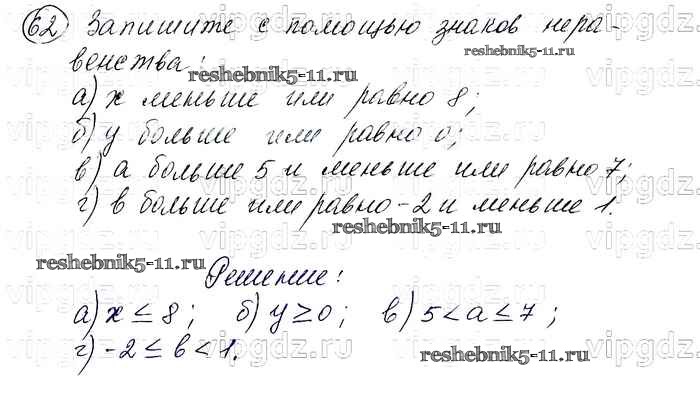 62 Запишите с помощью знаков нера-
венства:
а) x меньше или равно 8;
б) y больше или равно 0;
в) а больше 5 и меньше или равно 7;
г) в больше или равно -2 и меньше 1.
Решение:
а) x ≤ 8; б) y ≥ 0; в) 5 < а ≤ 7;
г) -2 ≤ в < 1.
reshebnik5-11.ru
reshebnik5-11.ru
reshebnik5-11.ru
reshebnik5-11.ru
reshebnik5-11.ru
vipgdz.ru